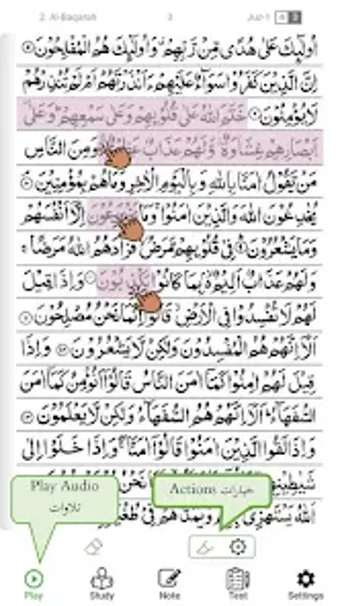 2. Al-Baqarah 3 Juz-1
اُولٰٓئِكَ عَلٰى هُدًى مِّنْ رَّبِّهِمْ وَاُولٰٓئِكَ هُمُ الْمُفْلِحُوْنَ ۝
اِنَّ الَّذِيْنَ كَفَرُوْا سَوَآءٌ عَلَيْهِمْ ءَاَنْذَرْتَهُمْ اَمْ لَمْ تُنْذِرْهُمْ
لَا يُؤْمِنُوْنَ ۝ خَتَمَ اللّٰهُ عَلٰى قُلُوْبِهِمْ وَعَلٰى سَمْعِهِمْ وَعَلٰٓى
اَبْصَارِهِمْ غِشَاوَةٌ وَّلَهُمْ عَذَابٌ وَمِنَ النَّاسِ
مَنْ يَّقُوْلُ اٰمَنَّا بِاللّٰهِ وَبِالْيَوْمِ الْاٰخِرِ وَمَا هُمْ بِمُؤْمِنِيْنَ ۝
يُخٰدِعُوْنَ اللّٰهَ وَالَّذِيْنَ اٰمَنُوْا وَمَا يَخْدَعُوْنَ اِلَّآ اَنْفُسَهُمْ
وَمَا يَشْعُرُوْنَ ۝ فِيْ قُلُوْبِهِمْ مَّرَضٌ فَزَادَهُمُ اللّٰهُ مَرَضًا
وَلَهُمْ عَذَابٌ اَلِيْمٌ بِمَا كَانُوْا يَكْذِبُوْنَ ۝ وَاِذَا قِيْلَ
لَهُمْ لَا تُفْسِدُوْا فِي الْاَرْضِ قَالُوْٓا اِنَّمَا نَحْنُ مُصْلِحُوْنَ ۝
اَلَآ اِنَّهُمْ هُمُ الْمُفْسِدُوْنَ وَلٰكِنْ لَّا يَشْعُرُوْنَ ۝ وَاِذَا
قِيْلَ لَهُمْ اٰمِنُوْا كَمَآ اٰمَنَ النَّاسُ قَالُوْٓا اَنُؤْمِنُ كَمَآ اٰمَنَ
السُّفَهَآءُ اَلَآ اِنَّهُمْ هُمُ السُّفَهَآءُ وَلٰكِنْ لَّا يَعْلَمُوْنَ ۝
وَاِذَا لَقُوا الَّذِيْنَ اٰمَنُوْا قَالُوْٓا اٰمَنَّا وَاِذَا خَلَوْا اِلٰى
شَيٰطِيْنِهِمْ نَحْنُ
اَللّٰهُ يَسْتَهْزِئُ بِهِمْ وَيَمُدُّهُمْ فِيْ
Play Audio
تلاوات
Actions خيارات
Play Study Note Test Settings